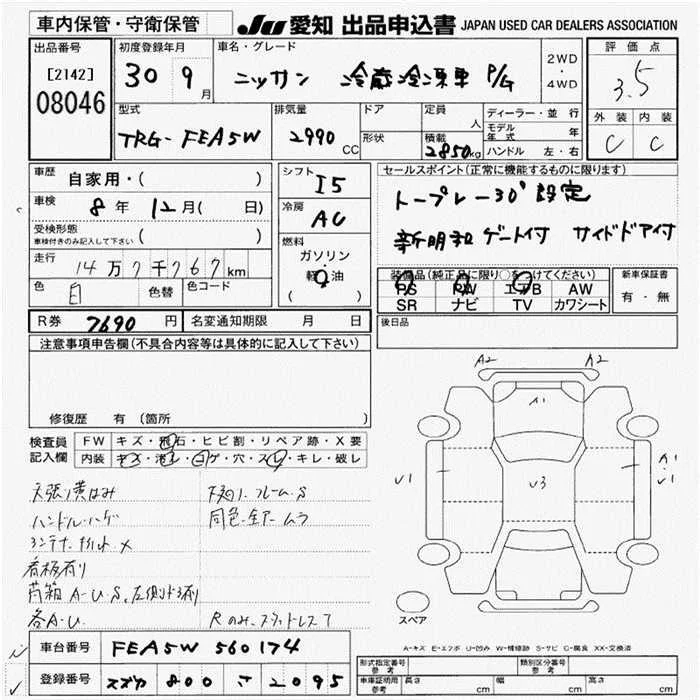 車内保管・守衛保管
JU 愛知 出品申込書 JAPAN USED CAR DEALERS ASSOCIATION
出品番号
[2142]
08046
初度登録年月
30 9月
車名・グレード
ニッサン 冷蔵冷凍車 P/G
2WD
・
4WD
評価点
3.5
外装 内装
C C
型式
TRG-FEA5W
排気量
2990 CC
ドア
形状
定員
人
積載
2850kg
ディーラー・並行
モデル年式 年
ハンドル 左・右
車歴
自家用・( )
車検
8年 12月( 日)
受検形態
車検付きのみ記入して下さい ( )
走行
14万7千767km
色
白
色替
色コード
シフト
I5
冷房
AC
燃料
ガソリン
軽油
( )
セールスポイント(正常に機能するものに限ります)
トープレー30°設定
新明和ゲート付 サイドドア付
装備品(純正品に限り○をつけてください)
PS PW エアB AW
SR ナビ TV カワシート
新車保証書
有・無
後日品
R券 7690円
名変通知期限 月 日
注意事項申告欄(不具合内容等は具体的に記入して下さい)
修復歴 有(箇所 )
検査員
記入欄
FW キズ・飛石・ヒビ割・リペア跡・X要
内装 キズ・汚レ・コゲ・穴・スレ・キレ・破レ
ハンドルハゲ
看板有り
A2 A2
A1
U1
U3
A1
U1
スペア
A-キズ E-エクボ U-凹み W-補修跡 S-サビ C-腐食 XX-交換済
車台番号 FEA5W 560174
登録番号 スズカ 800 さ 2095
形式指定番号
参考
類別区分番号
参考
車庫証明用
参考
長さ cm 幅 cm 高さ cm